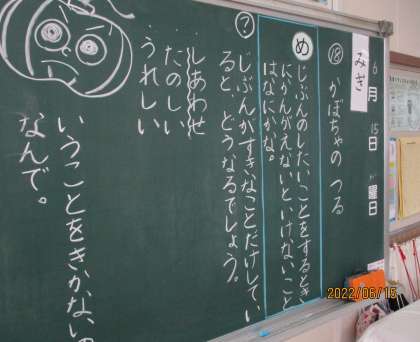 6月15日 曜日
みぎ
⑱ かぼちゃの つる
め
じぶんのしたいことをするとき
にかんがえないといけないこと
はなにかな。
？
じぶんがすきなことだけしてい
ると、どうなるでしょう。
しあわせ
たのしい
うれしい
いうことをきかないの
なんで。
2022/06/15